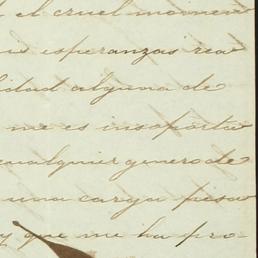 el cruel momen
esperanzas rea
lidad alguna de
me es insoporta
cualquier genero de
una carga pesa
y que me ha pro